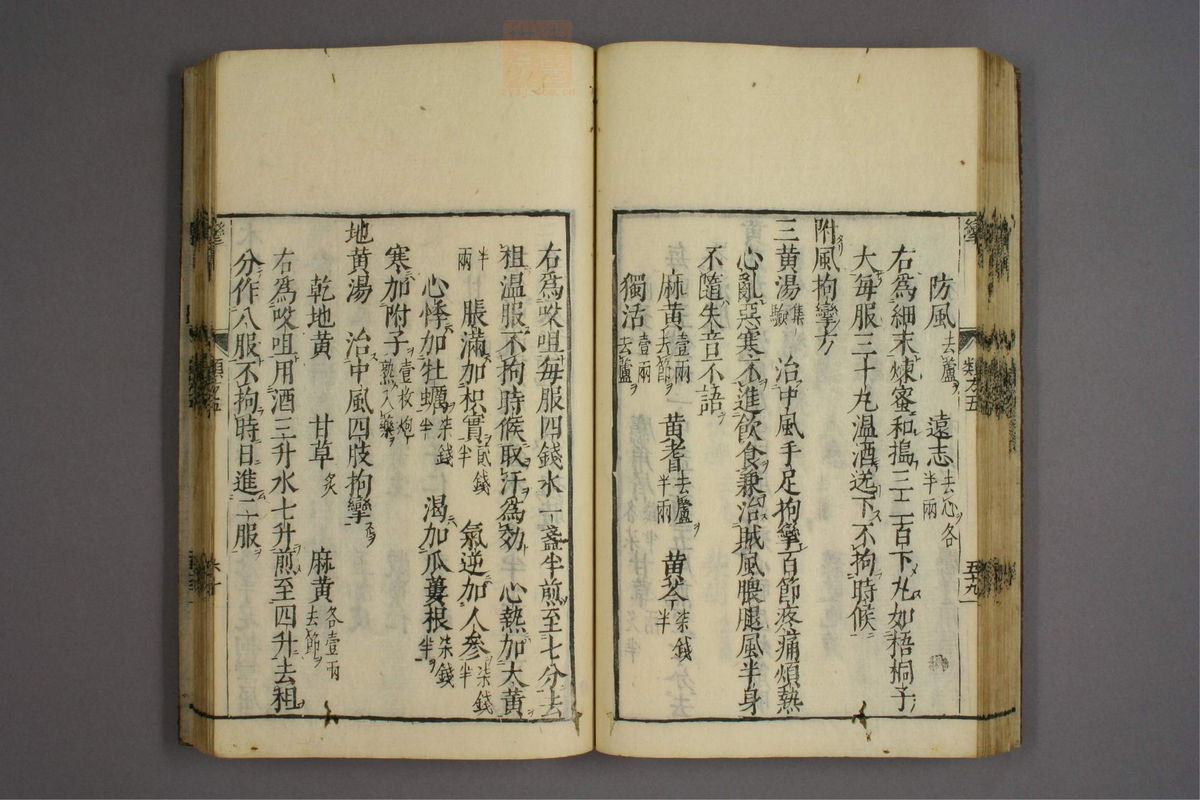 防風去蘆　遠志去心各半兩
右爲細末煉蜜和搗三二百下丸如梧桐子
大每服三十丸温酒送下不拘時候
附風拘攣方
三黄湯集驗　治中風手足拘攣百節疼痛煩熱
心亂惡寒不進飲食兼治賊風腲腿風半身
不隨失音不語
麻黄去節壹兩　黄耆去蘆半兩　黄芩柒錢半
獨活去蘆壹兩
右爲㕮咀每服四錢水一盞半煎至七分去
柤温服不拘時候取汗爲効　心熱加大黄
半兩　脹滿加枳實貳錢半　氣逆加人參柒錢半
心悸加牡蠣柒錢半　渴加瓜蔞根柒錢半
寒加附子壹枚炮熟入藥
地黄湯　治中風四肢拘攣
乾地黄　甘草炙　麻黄各壹兩去節
右爲㕮咀用酒三升水七升煎至四升去柤
分作八服不拘時日進二服
類方五
五九